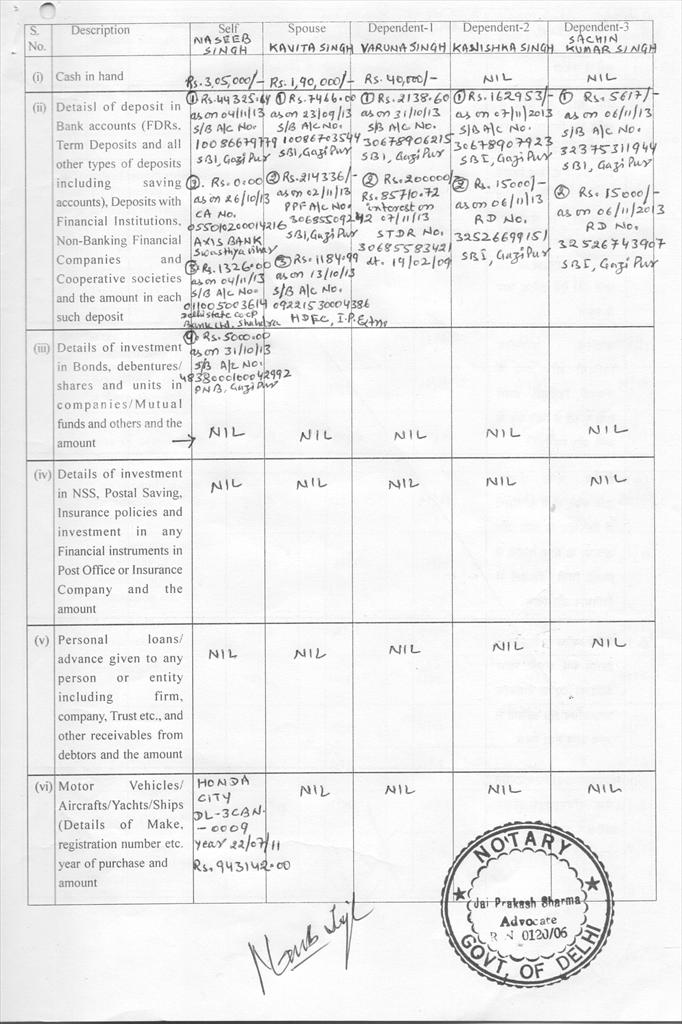 S. No. Description Self Spouse Dependent-1 Dependent-2 Dependent-3
NASEEB SINGH KAVITA SINGH VARUNA SINGH KANISHKA SINGH SACHIN KUMAR SINGH
(i) Cash in hand Rs.3,05,000/- Rs.1,90,000/- Rs.40,000/- NIL NIL
(ii) Detaisl of deposit in
Bank accounts (FDRs.
Term Deposits and all
other types of deposits
including saving
accounts), Deposits with
Financial Institutions,
Non-Banking Financial
Companies and
Cooperative societies
and the amount in each
such deposit
① Rs.44325.64
as on 04/11/13
S/B A/C No.
10086679779
SBI, Gazi Pur
②. Rs. 0.00
as on 26/10/13
CA No.
055010200014216
AXIS BANK
Swasthya vihar
③ Rs.1326.00
as on 04/11/13
S/B A/c No.
011005003614
Delhi state co op
Bank Ltd. Shahdra
④ Rs.5000.00
as on 31/10/13
S/B A/C No.
4838000100042992
PNB, Gazi Pur
① Rs.7466.00
as on 23/09/13
S/B A/C No.
10086703544
SBI, Gazi Pur
② Rs.214336/-
as on 02/11/13
PPF A/C No.
30685509242
SBI, Gazi Pur
③ Rs.1184.99
as on 13/10/13
S/B A/c No.
09221530004386
HDFC, I.P. Extn.
① Rs.2138.60
as on 31/10/13
S/B A/C No.
30678906215
SBI, Gazi Pur
② Rs.200000/-
Rs.85710.72
interest on
07/11/13
STDR No.
30685583421
dt. 19/02/09
① Rs.162953/-
as on 07/11/2013
S/B A/C No.
30678907923
SBI, Gazi Pur
② Rs. 15000/-
as on 06/11/13
RD No.
32526699151
SBI, Gazi Pur
① Rs. 5617/-
as on 06/11/13
S/B A/c No.
32375311944
SBI, Gazi Pur
② Rs. 15000/-
as on 06/11/2013
RD No.
32526743907
SBI, Gazi Pur
(iii) Details of investment
in Bonds, debentures/
shares and units in
companies/Mutual
funds and others and the
amount → NIL NIL NIL NIL NIL
(iv) Details of investment
in NSS, Postal Saving,
Insurance policies and
investment in any
Financial instruments in
Post Office or Insurance
Company and the
amount
NIL NIL NIL NIL NIL
(v) Personal loans/
advance given to any
person or entity
including firm,
company, Trust etc., and
other receivables from
debtors and the amount
NIL NIL NIL NIL NIL
(vi) Motor Vehicles/
Aircrafts/Yachts/Ships
(Details of Make,
registration number etc.
year of purchase and
amount
HONDA
CITY
DL-3CBN-
-0009
year 22/07/11
Rs.943142.00
NIL NIL NIL NIL
NOTARY
Jai Prakash Sharma
Advocate
R N 0120/06
GOVT. OF DELHI